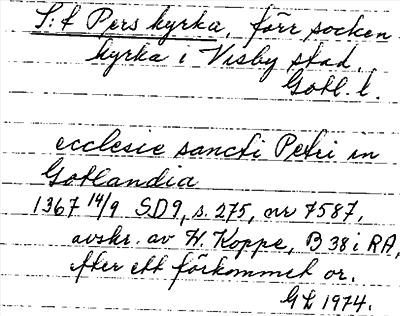 S:t Pers kyrka, förr socken-
kyrka i Visby stad,
Gotl. l.
ecclesie sancti Petri in
Gotlandia
1367 14/9 SD9, s. 275, nr 7587,
avskr. av H. Koppe, B 38 i RA,
efter ett förkommet or.
GL 1974.